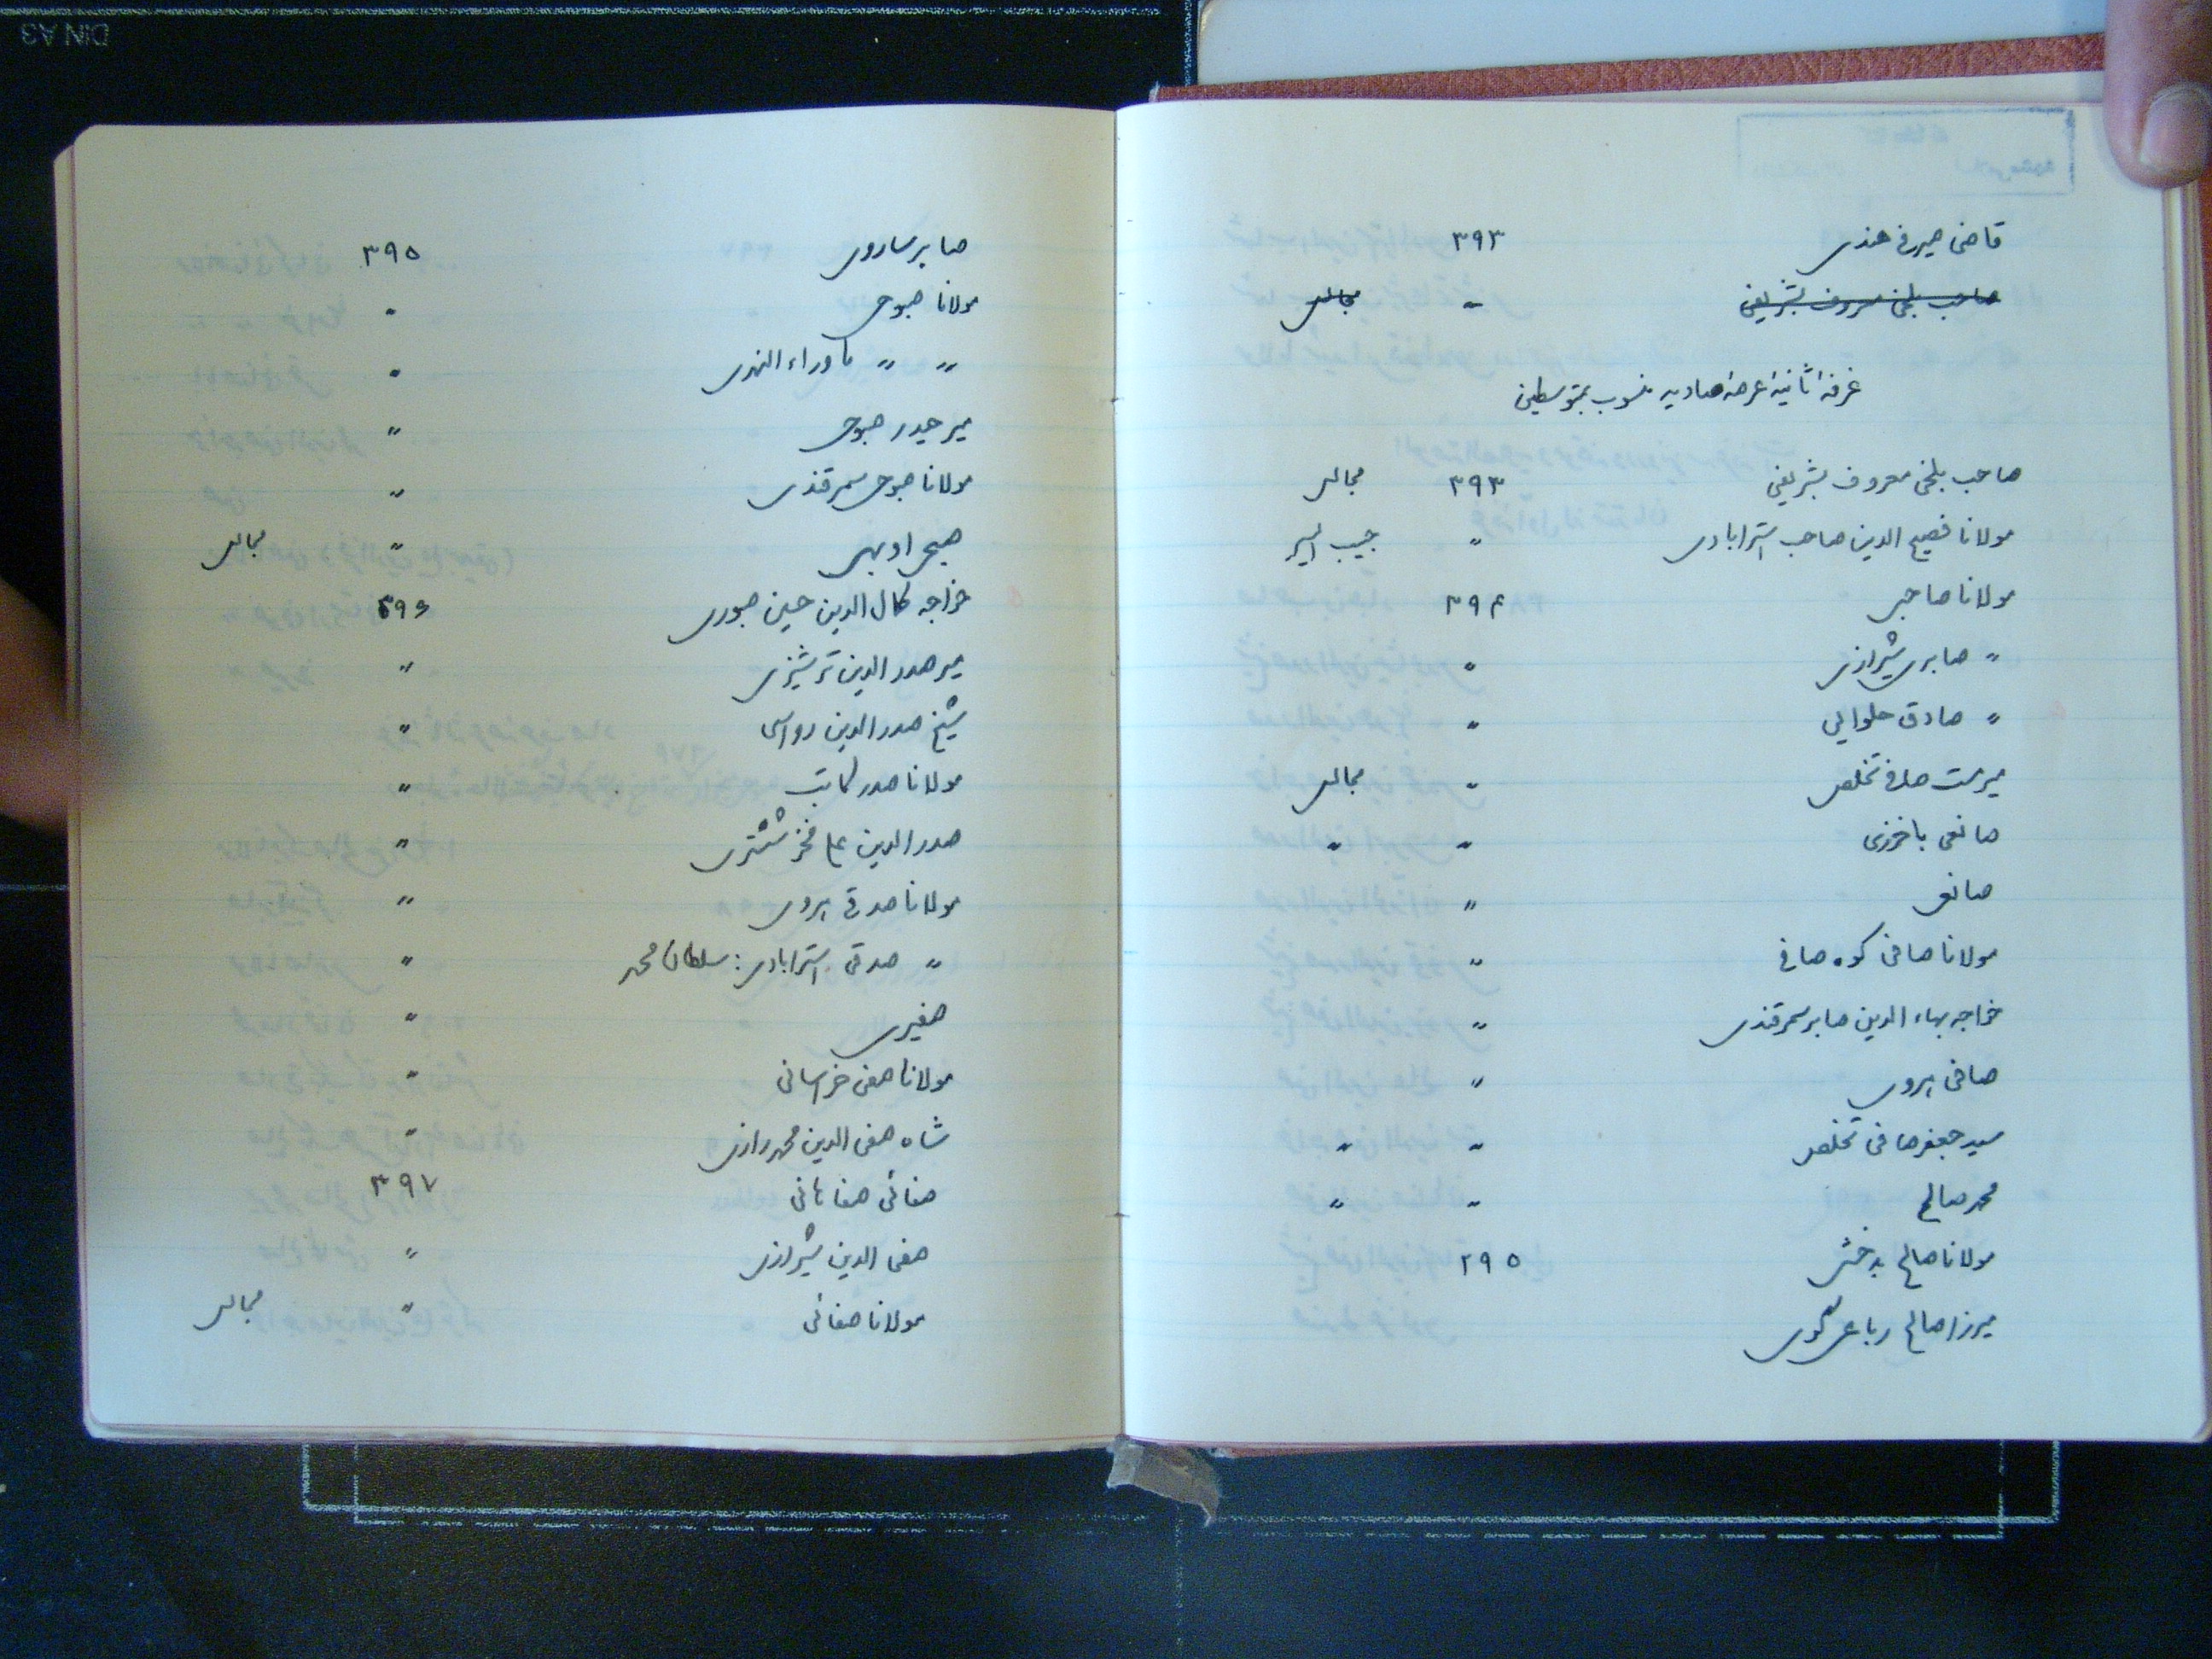 قاضی صیرفی هندی ۳۹۳
صاحب بلخی معروف بشریفی 〃 مجالس
غرفهٔ ثانیهٔ عرصهٔ صادیه منسوب بمتوسطین
صاحب بلخی معروف بشریفی ۳۹۳ مجالس
مولانا فصیح الدین صاحب استرابادی 〃 حبیب السیر
مولانا صاحبی ۳۹۴
〃 صابری شیرازی 〃
〃 صادق حلوایی 〃
میر صافی تخلص 〃 مجالس
صانعی باخرزی 〃 〃
صانعی 〃
مولانا صافی کوه صافی 〃
خواجه بهاء الدین صابر سمرقندی 〃
صافی هروی 〃
سید جعفر صافی تخلص 〃 〃
محمد صالح 〃 〃
مولانا صالح بدخشی ۳۹۵
میرزا صالح رباعی گوی
صابر ساروی ۳۹۵
مولانا صبوحی 〃
〃 〃 ماوراء النهری 〃
میر حیدر صبوحی 〃
مولانا صبوحی سمرقندی 〃
صبحی اوبهی 〃 مجالس
خواجه کمال الدین حسین صبوری ۳۹۶
میر صدر الدین ترشیزی 〃
شیخ صدر الدین رواسی 〃
مولانا صدر کاتب 〃
صدر الدین علی فخر شتتری 〃
مولانا صدقی هروی 〃
〃 صدقی استرابادی: سلطان محمد 〃
صفیری 〃
مولانا صفی خراسانی 〃
شاه صفی الدین محمد رازی 〃
صفائی صفاهانی ۳۹۷
صفی الدین شیرازی 〃
مولانا صفائی 〃 مجالس
DIN A3